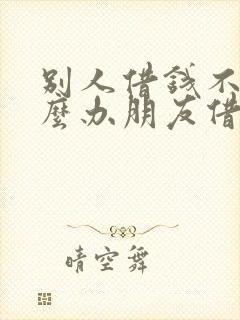 别人借钱不
麼办朋友借
晴空舞